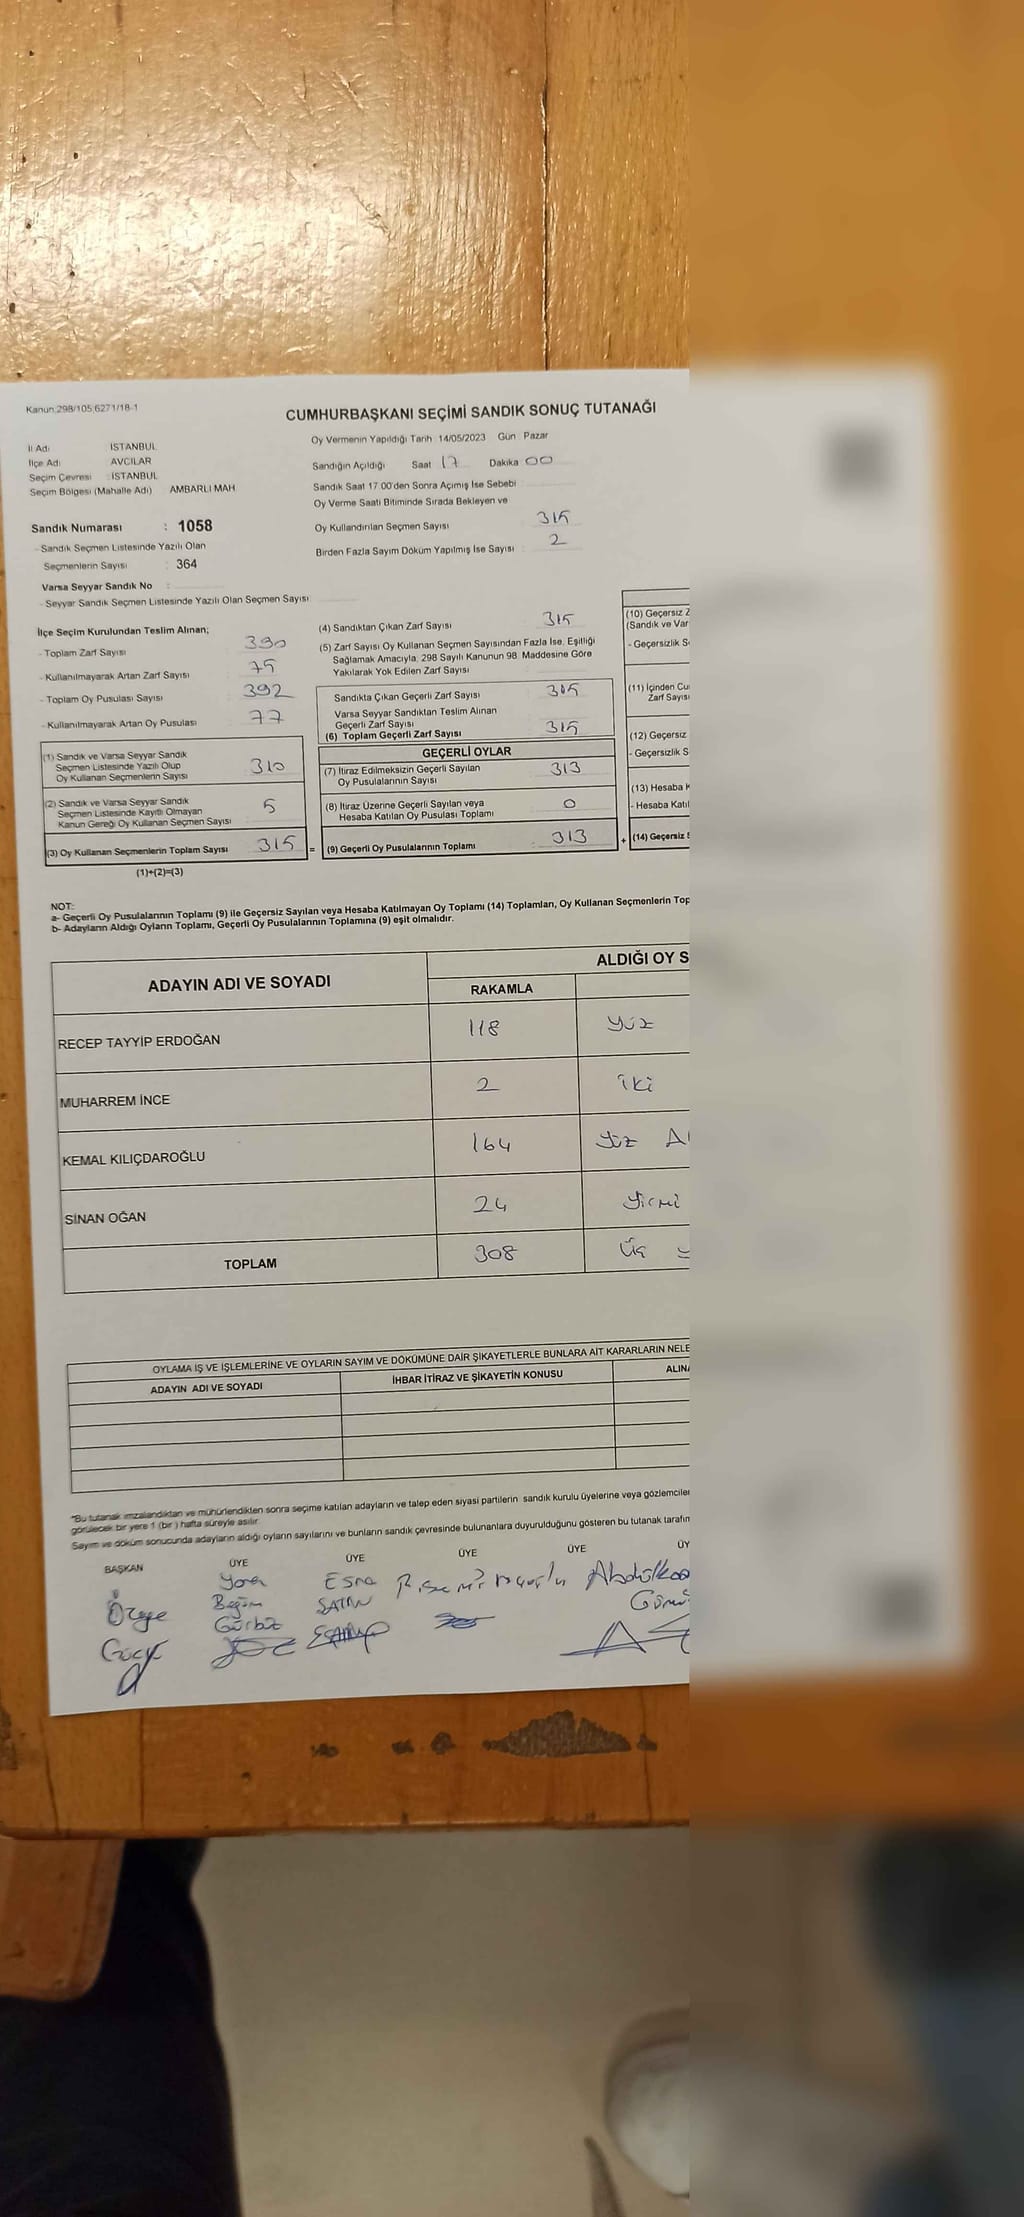 Kanun:298/105;6271/18-1
CUMHURBAŞKANI SEÇİMİ SANDIK SONUÇ TUTANAĞI
İl Adı : İSTANBUL
İlçe Adı : AVCILAR
Seçim Çevresi : İSTANBUL
Seçim Bölgesi (Mahalle Adı) AMBARLI MAH.
Sandık Numarası : 1058
- Sandık Seçmen Listesinde Yazılı Olan
Seçmenlerin Sayısı : 364
Varsa Seyyar Sandık No :
- Seyyar Sandık Seçmen Listesinde Yazılı Olan Seçmen Sayısı
Oy Vermenin Yapıldığı Tarih 14/05/2023 Gün : Pazar
Sandığın Açıldığı Saat 17 Dakika 00
Sandık Saat 17.00'den Sonra Açımış İse Sebebi
Oy Verme Saati Bitiminde Sırada Bekleyen ve
Oy Kullandırılan Seçmen Sayısı : 315
Birden Fazla Sayım Döküm Yapılmış İse Sayısı : 2
İlçe Seçim Kurulundan Teslim Alınan;
- Toplam Zarf Sayısı 390
- Kullanılmayarak Artan Zarf Sayısı 75
- Toplam Oy Pusulası Sayısı 392
- Kullanılmayarak Artan Oy Pusulası 77
(1) Sandık ve Varsa Seyyar Sandık
Seçmen Listesinde Yazılı Olup
Oy Kullanan Seçmenlerin Sayısı 310
(2) Sandık ve Varsa Seyyar Sandık
Seçmen Listesinde Kayıtlı Olmayan
Kanun Gereği Oy Kullanan Seçmen Sayısı 5
(3) Oy Kullanan Seçmenlerin Toplam Sayısı 315 =
(1)+(2)=(3)
(4) Sandıktan Çıkan Zarf Sayısı 315
(5) Zarf Sayısı Oy Kullanan Seçmen Sayısından Fazla İse, Eşitliği
Sağlamak Amacıyla, 298 Sayılı Kanunun 98. Maddesine Göre
Yakılarak Yok Edilen Zarf Sayısı :
Sandıkta Çıkan Geçerli Zarf Sayısı 315
Varsa Seyyar Sandıktan Teslim Alınan
Geçerli Zarf Sayısı
(6) Toplam Geçerli Zarf Sayısı 315
GEÇERLİ OYLAR
(7) İtiraz Edilmeksizin Geçerli Sayılan
Oy Pusulalarının Sayısı 313
(8) İtiraz Üzerine Geçerli Sayılan veya
Hesaba Katılan Oy Pusulası Toplamı 0
(9) Geçerli Oy Pusulalarının Toplamı 313 +
(10) Geçersiz Z
(Sandık ve Var
- Geçersizlik S
(11) İçinden Cu
Zarf Sayısı
(12) Geçersiz
- Geçersizlik S
(13) Hesaba K
- Hesaba Katıl
(14) Geçersiz S
NOT:
a- Geçerli Oy Pusulalarının Toplamı (9) ile Geçersiz Sayılan veya Hesaba Katılmayan Oy Toplamı (14) Toplamları, Oy Kullanan Seçmenlerin Top
b- Adayların Aldığı Oyların Toplamı, Geçerli Oy Pusulalarının Toplamına (9) eşit olmalıdır.
ADAYIN ADI VE SOYADI
ALDIĞI OY S
RAKAMLA
RECEP TAYYİP ERDOĞAN 118 Yüz
MUHARREM İNCE 2 iki
KEMAL KILIÇDAROĞLU 164 Yüz A
SİNAN OĞAN 24 Yirmi
TOPLAM 308 Üç
OYLAMA İŞ VE İŞLEMLERİNE VE OYLARIN SAYIM VE DÖKÜMÜNE DAİR ŞİKAYETLERLE BUNLARA AİT KARARLARIN NELE
ADAYIN ADI VE SOYADI İHBAR İTİRAZ VE ŞİKAYETİN KONUSU ALINA
"Bu tutanak imzalandıktan ve mühürlendikten sonra seçime katılan adayların ve talep eden siyasi partilerin sandık kurulu üyelerine veya gözlemciler
görülecek bir yere 1 (bir ) hafta süreyle asılır.
Sayım ve döküm sonucunda adayların aldığı oyların sayılarını ve bunların sandık çevresinde bulunanlara duyurulduğunu gösteren bu tutanak tarafın
BAŞKAN ÜYE ÜYE ÜYE ÜYE ÜY
Özge Esra
Begüm SATAN
Gürbüz